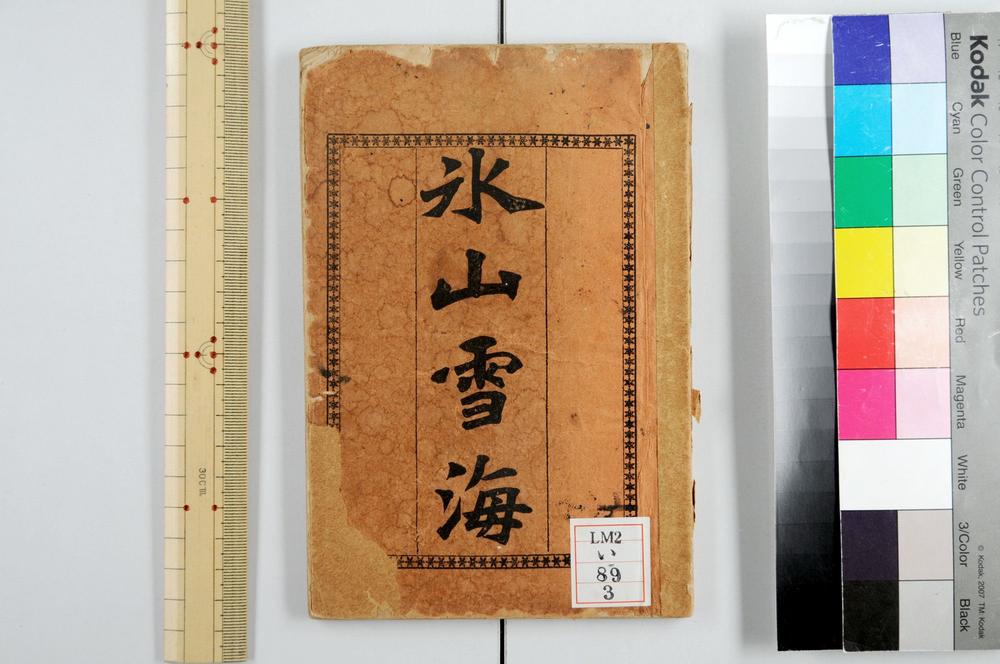 氷山雪海
LM2
い
89
3
30cm.
Kodak Color Control Patches
Blue
Cyan
Green
Yellow
Red
Magenta
White
3/Color
Black
© Kodak, 2007 TM: Kodak